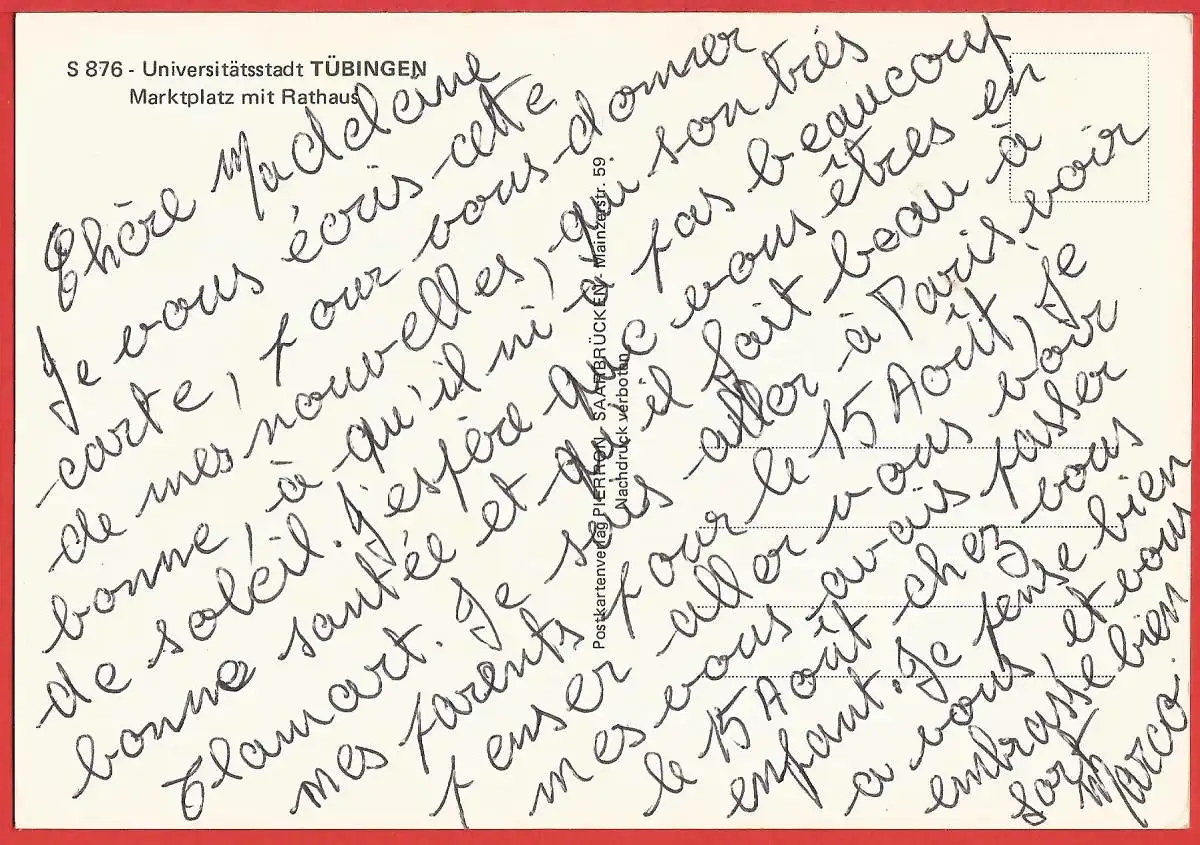 S 876 - Universitätsstadt TÜBINGEN
Marktplatz mit Rathaus
Chère Madeleine
Je vous écris cette
carte, pour vous donner
de mes nouvelles, qui son très
bonne, à qu'il ni a pas beaucoup
de soléil. J'espère que vous êtres en
bonne santée et qu'il fait beau à
Clamart. Je suis aller à Paris voir
mes parents pour le 15 Août, Je
penser aller vous voir
mes vous avais passer
le 15 Août chez vous
enfant. Je pense bien
a vous, et vous
embrasse bien
fort
Marco.
Postkartenverlag PIERRON SAARBRÜCKEN Mainzerstr. 59
Nachdruck verboten